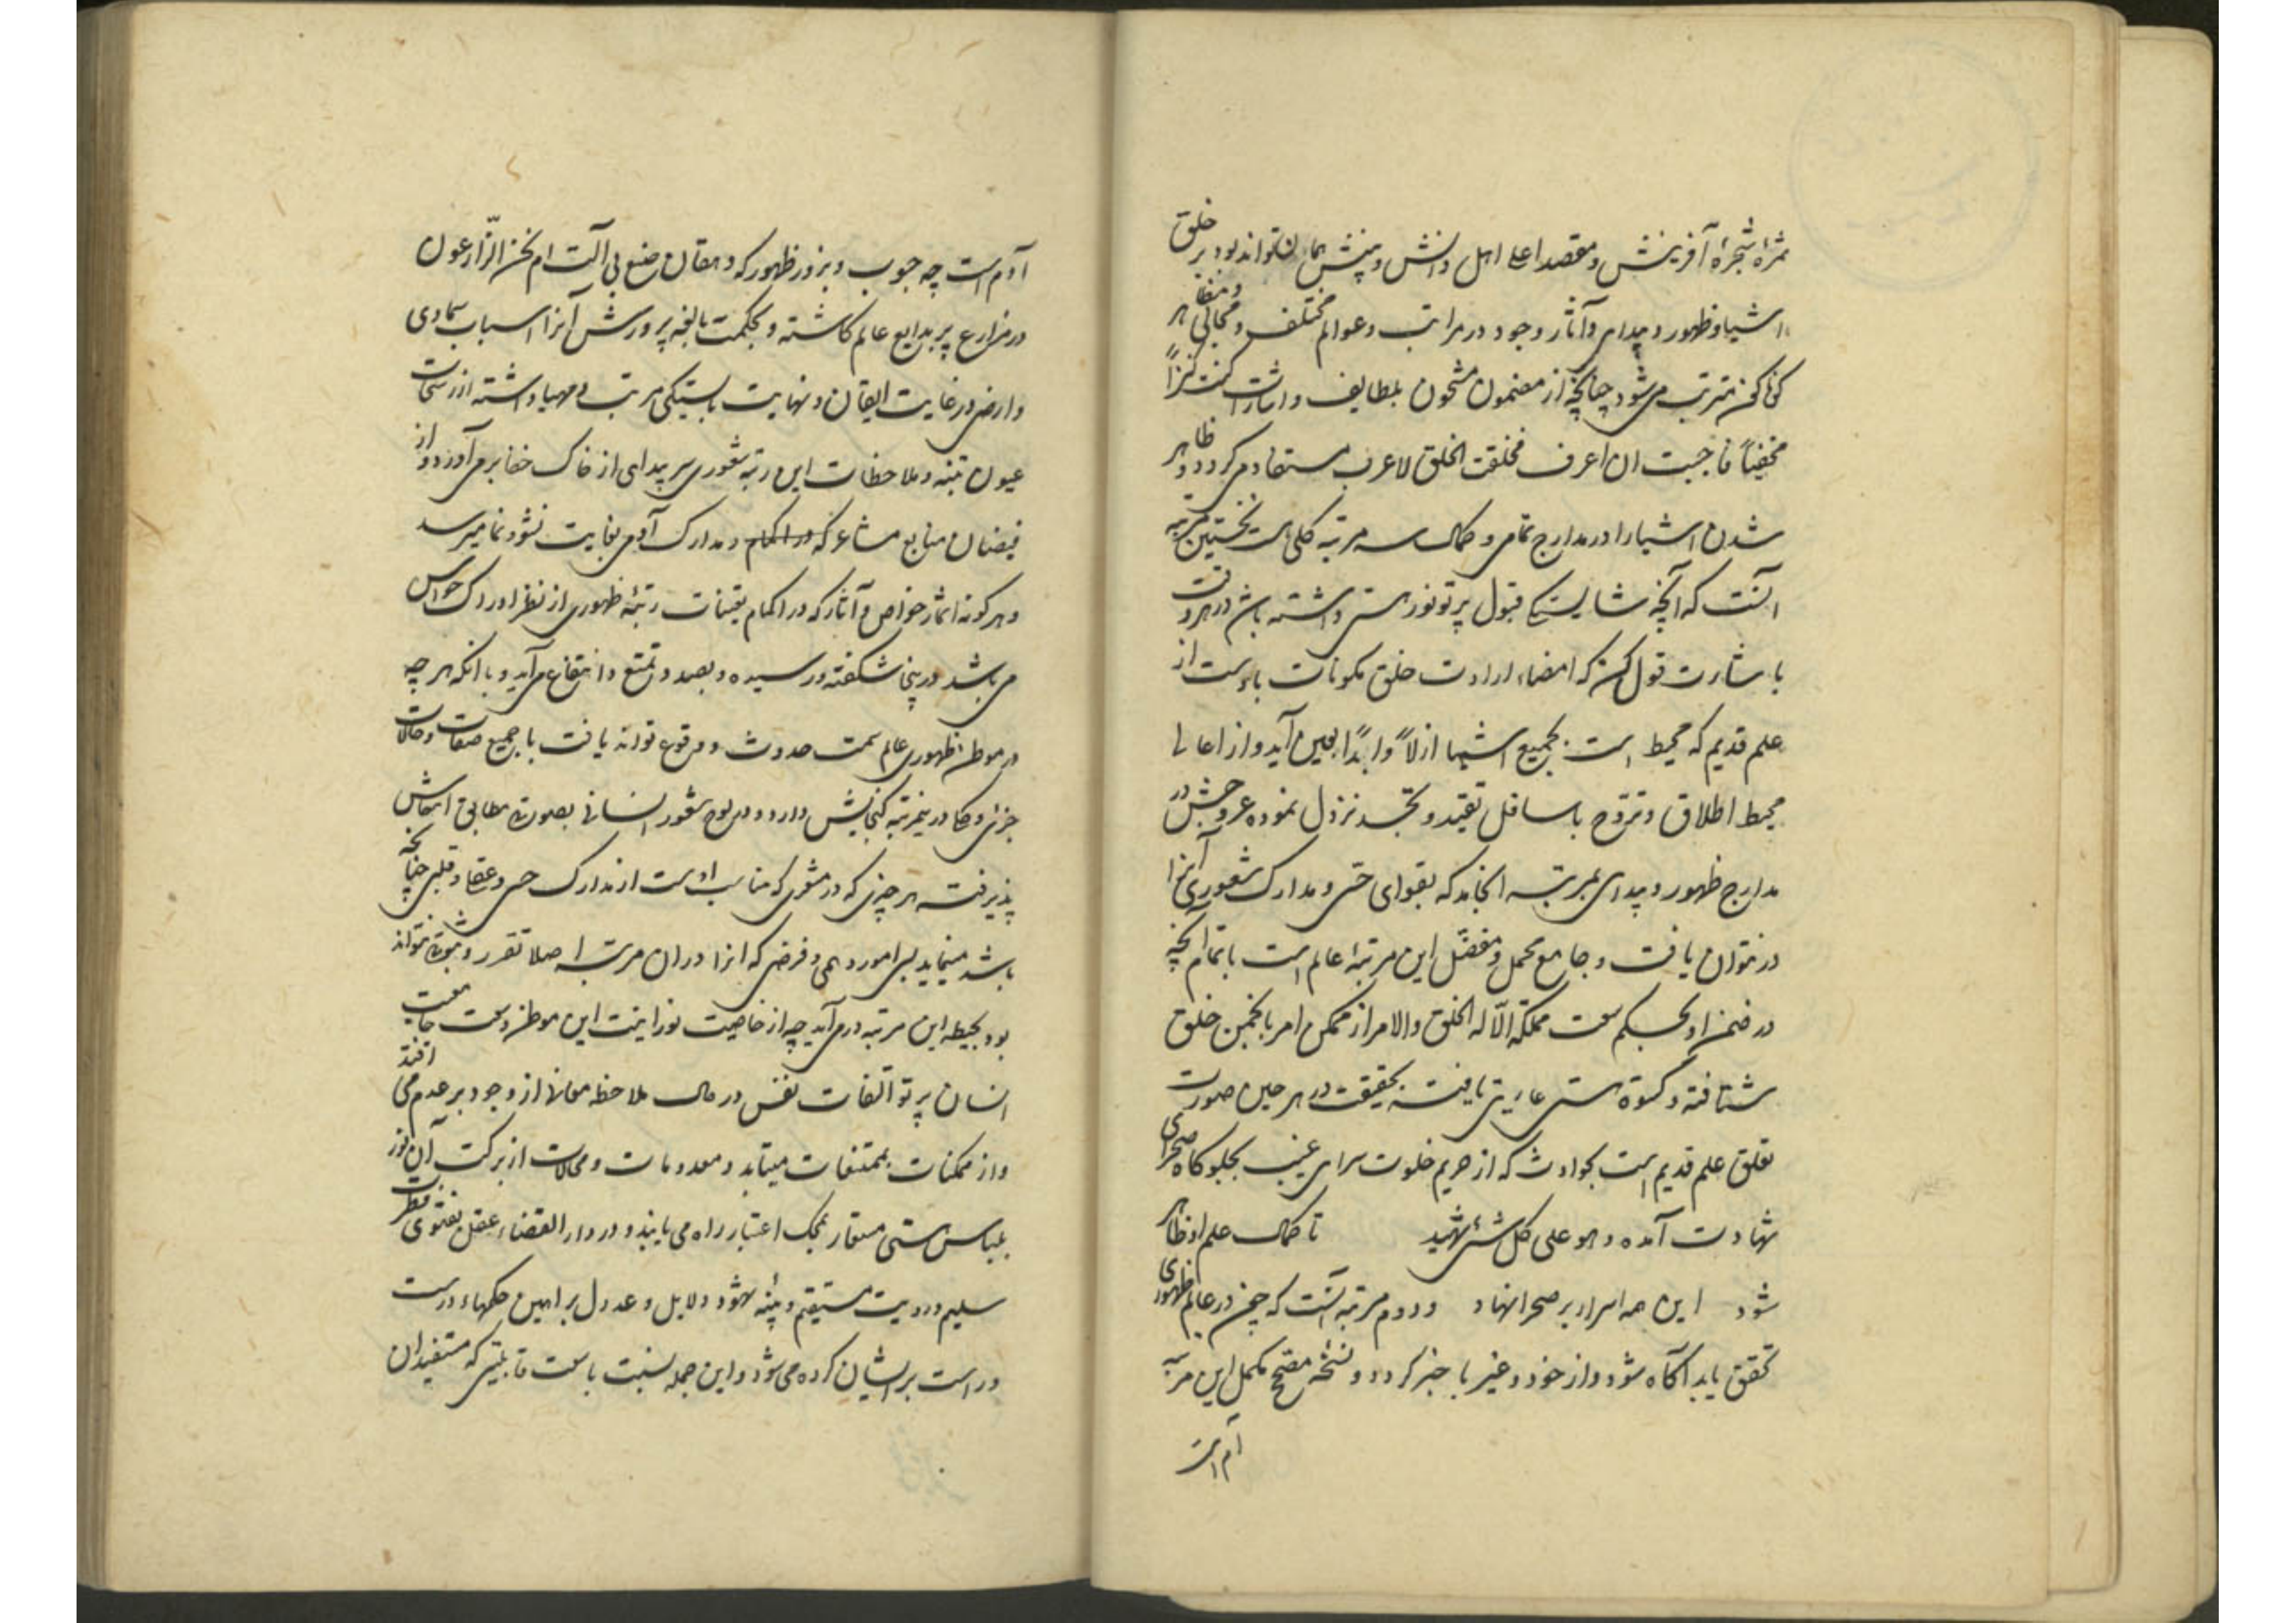 ثمرهٔ شجرهٔ آفرینش و مقصد اعلی اهل دانش و بینش همان تواند بود بر خلق
اشیا و ظهور و پیدایی و آثار وجود در مراتب و عوالم مختلف و مجالی و مظاهر
کن فکن مترتب می‌شود چنانچه از مضمون مشحون بلطایف و اشارات کنت کنزاً
مخفیاً فاحببت ان اعرف فخلقت الخلق لاعرف مستفاد می‌گردد و ظاهر
شدن اشیا را در مدارج تمامی و کمال سه مرتبه کلی است نخستین مرتبه
آنست که آنچه شایستگی قبول پرتو نور هستی داشته باشد در هر وقت
با شارت قول کن که امضاء ارادت خلق مکونات باوست از
علم قدیم که محیط است بجمیع اشیا ازلاً و ابداً بعین آید و از اعالی
محیط اطلاق و تروّح باسافل تقید و تجسد نزول نموده عروجش در
مدارج ظهور و پیدایی بمرتبه انجامد که بقوای حسّی و مدارک شعوری آنرا
در توان یافت و جامع مجمل و مفصّل این مرتبهٔ عالم است با تمام آنچه
در ضمن او بحکم سعت مملکة الّا له الخلق والامر از ممکن امر بانجمن خلق
شتافته و کسوة هستی عاریتی یافته بحقیقت در هر حین صورت
تعلق علم قدیم است بحوادث که از حریم خلوت سرای غیب بجلوگاه صحرای
شهادت آمده و هو علی کل شئ شهید تا کمال علم او ظاهر
شود این همه اسرار بر صحرا نهاد و دوم مرتبه آنست که چون در عالم ظهوری
تحقق یابد آگاه شود و از خود و غیر با خبر گردد و نسخهٔ مصحح مکمل این مرتبه
آدم است
آدم است چه حبوب و بزور ظهور که دهقان صنع بی آلت ام نحن الزّارعون
در مزارع پر بدایع عالم کاشته و بحکمت بالغه پرورش آنرا اسباب سماوی
و ارضی در غایت اتقان و نهایت بایستگی مرتب و مهیا داشته از رشحات
عیون تنبه و ملاحظات این رتبه شعوری سر پیدایی از خاک خفا برمی‌آورد و از
فیضان منابع مشاعر که در اکمام و مدارک آدمی بغایت نشو و نما میرسد
و هر گونه اثمار خواص و آثار که در اکمام تعینات رتبهٔ ظهوری از نظر ادراک حواس
می‌باشد درینجا شکفته و رسیده و بصدد تمتع و انتفاع می‌آید و با آنکه هر چه
در موطن ظهوری عالم سمت حدوث و وقوع تواند یافت با جمیع صفات و حالات
جزئی و کلی درینمرتبه گنجایش دارد و در لوح شعور انسانی بصورت مطابق انتقاش
پذیرفته هر چیزی که در مشعری که مناسب اوست از مدارک حسی و عقلی و قلبی چنانچه
باشد مینماید بسی امور وهمی و فرضی که آنرا در آن مرتبه اصلا تقرر و ثبوت نتواند
بود بحیطه این مرتبه درمی‌آید چه از خاصیت نورانیت این موطن و سعت جامعیت
انسان پرتو التفات نفس در حال ملاحظه معانی از وجود بر عدم می افتد
و از ممکنات بممتنعات میتابد و معدومات و محالات از برکت آن نور
بلباس هستی مستعار بمحک اعتبار راه می یابند و در دار القضاء عقل بفتوی فطرت
سلیم و رویت مستقیم و بینه شهود دلایل و عدول براهین حکمهاء درست
و راست بر ایشان کرده می‌شود و این جمله نسبت با سعت قابلیتی که مستفیدان